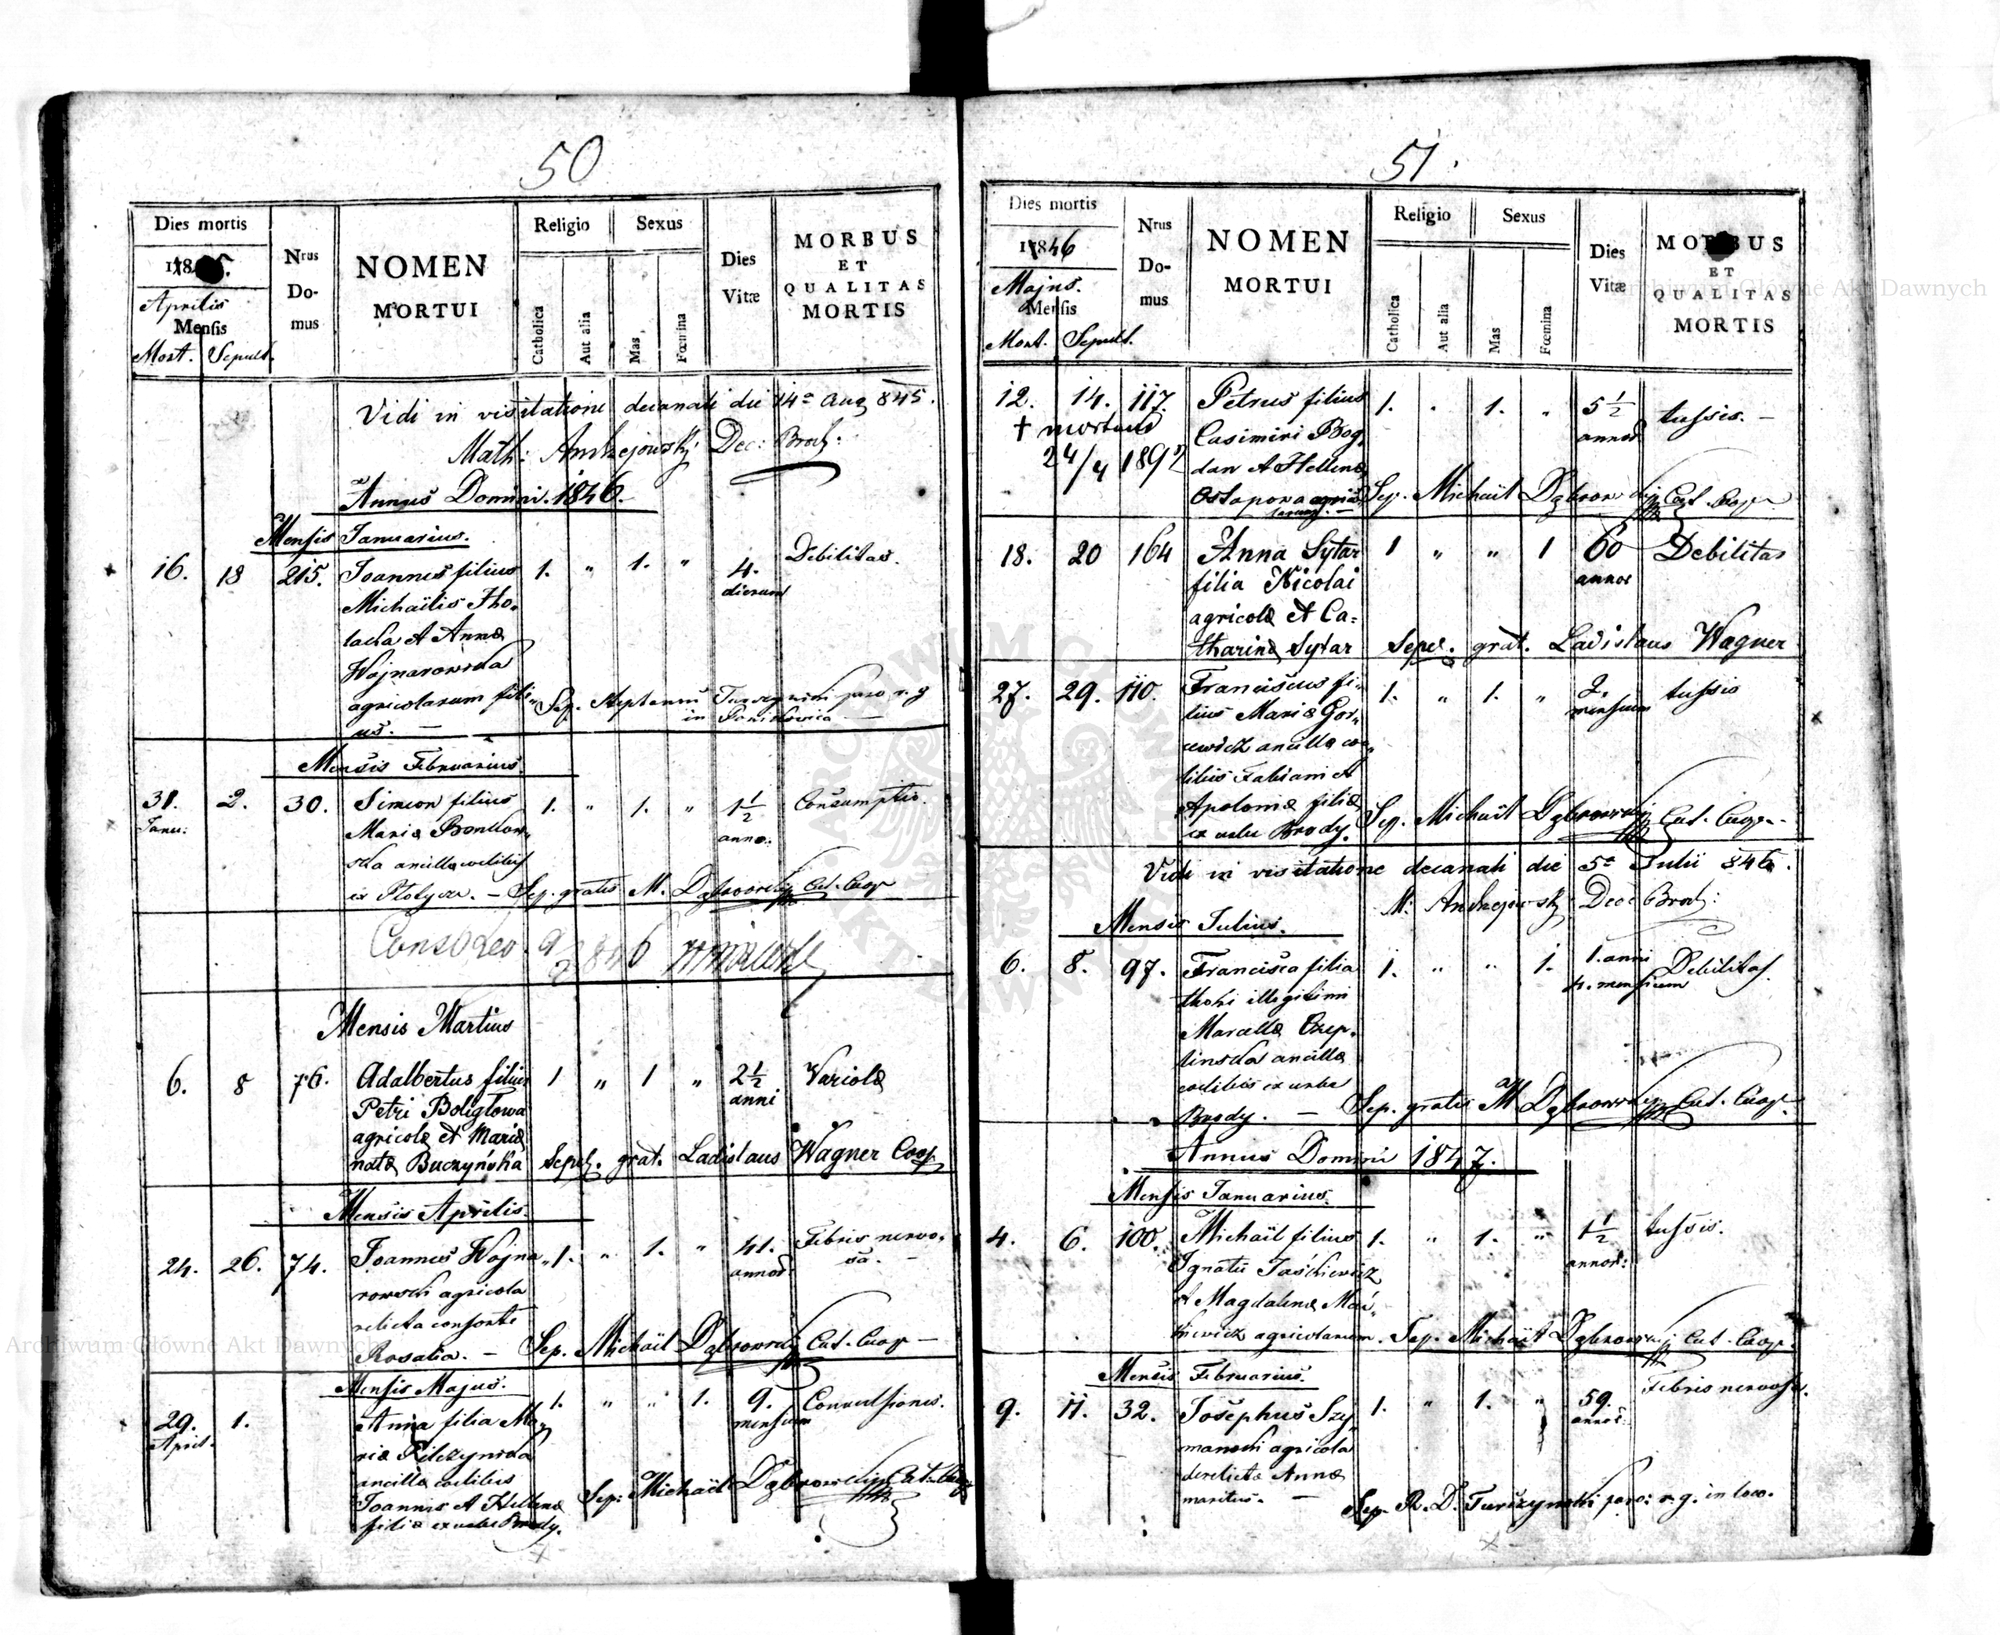 50
Dies mortis
Nrus Domus
NOMEN MORTUI
Religio
Sexus
Dies Vitæ
MORBUS ET QUALITAS MORTIS
Aprilis
Mensis
Mort. Sepult.
Catholica
Aut alia
Mas
Fœmina
Vidi in visitatione decanali die 14a Aug 845.
Math: Andrzejowski Dec: Brod:
Annus Domini. 1846.
Mensis Januarius.
16. 18 215. Joannes filius 1. " 1. " 4. dierum Debilitas.
Michaëlis
et Annæ
Wojnarowska
agricolarum fili-
us. —
Sep.
in
Mensis Februarius.
31. Janu: 2. 30. Simeon filius 1. " 1. " 1 1/2 anno: Consumptio.
Mariæ
ancilla
ex — Sep. gratis M. Dąbrowski Cat. Coop
Mensis Martius
6. 8 76. Adalbertus filius 1 " 1 " 2 1/2 anni Variolæ
Petri Boligłowa
agricolæ et Mariæ
natæ Buczyńska Sepel. grat. Ladislaus Wagner Coop
Mensis Aprilis.
24. 26. 74. Joannes Wojna- 1. " 1. " 41. annor: Febris nervo-
rowski agricola sa. —
relicta consorte
Rosalia. — Sep. Michaël Dąbrowski Cat. Coop —
Mensis Majus.
29. April. 1. Anna filia Ma- 1. " " 1. 9. mensium Convulsiones.
riæ Pilczynska
ancillæ
Joannis et Hellenæ Sep: Michaël Dąbrowski Cat. Coop
filiæ ex urbe Brody.
51.
Dies mortis
Nrus Domus
NOMEN MORTUI
Religio
Sexus
Dies Vitæ
MORBUS ET QUALITAS MORTIS
1846
Majus.
Mensis
Mort. Sepult.
Catholica
Aut alia
Mas
Fœmina
12. 14. 117. Petrus filius 1. . 1. " 5 1/2 annor tussis. —
† mortuus Casimiri Bog-
24/4 1892 dan et Hellenæ
Ostapowa Sep. Michaël Dąbrowski Cat. Coop
18. 20 164 Anna Sytar 1 " " 1 60 annor Debilitas
filia Nicolai
agricolæ et Ca=
tharinæ Sytar Sepel. grat. Ladislaus Wagner
27. 29. 110. Franciscus fi- 1. " 1. " 2. mensium tussis
lius Mariæ Gor-
ancillæ
Fabiani et
Apoloniæ filiæ
ex urbe Brody. Sep. Michaël Dąbrowski Cat. Coop. -
Vidi in visitatione decanali die 5a Julii 846.
M: Andrzejowski Dec: Brod:
Mensis Julius.
6. 8. 97. Francisca filia 1. " " 1. 1. anni 4. mensium Debilitas.
thori illegitimi
Marcellæ
ancillæ
ex urbe
Brody. — Sep. gratis M Dąbrowski Cat. Coop.
Annus Domini 1847.
Mensis Januarius.
4. 6. 100. Michaël filius 1. " 1. " 1 1/2 annor: tussis.
Ignatii Jaśkiewicz
et Magdalenæ
agricolarum. Sep. Michaël Dąbrowski Cat. Coop.
Mensis Februarius.
9. 11. 32. Josephus Szy- 1. " 1. " 59. annor: Febris nervosa.
manski agricola
derelictæ Annæ
maritus. — Sep. R. D. Turczynski paro: r. g. in loco.
Archiwum Główne Akt Dawnych
Archiwum Główne Akt Dawnych